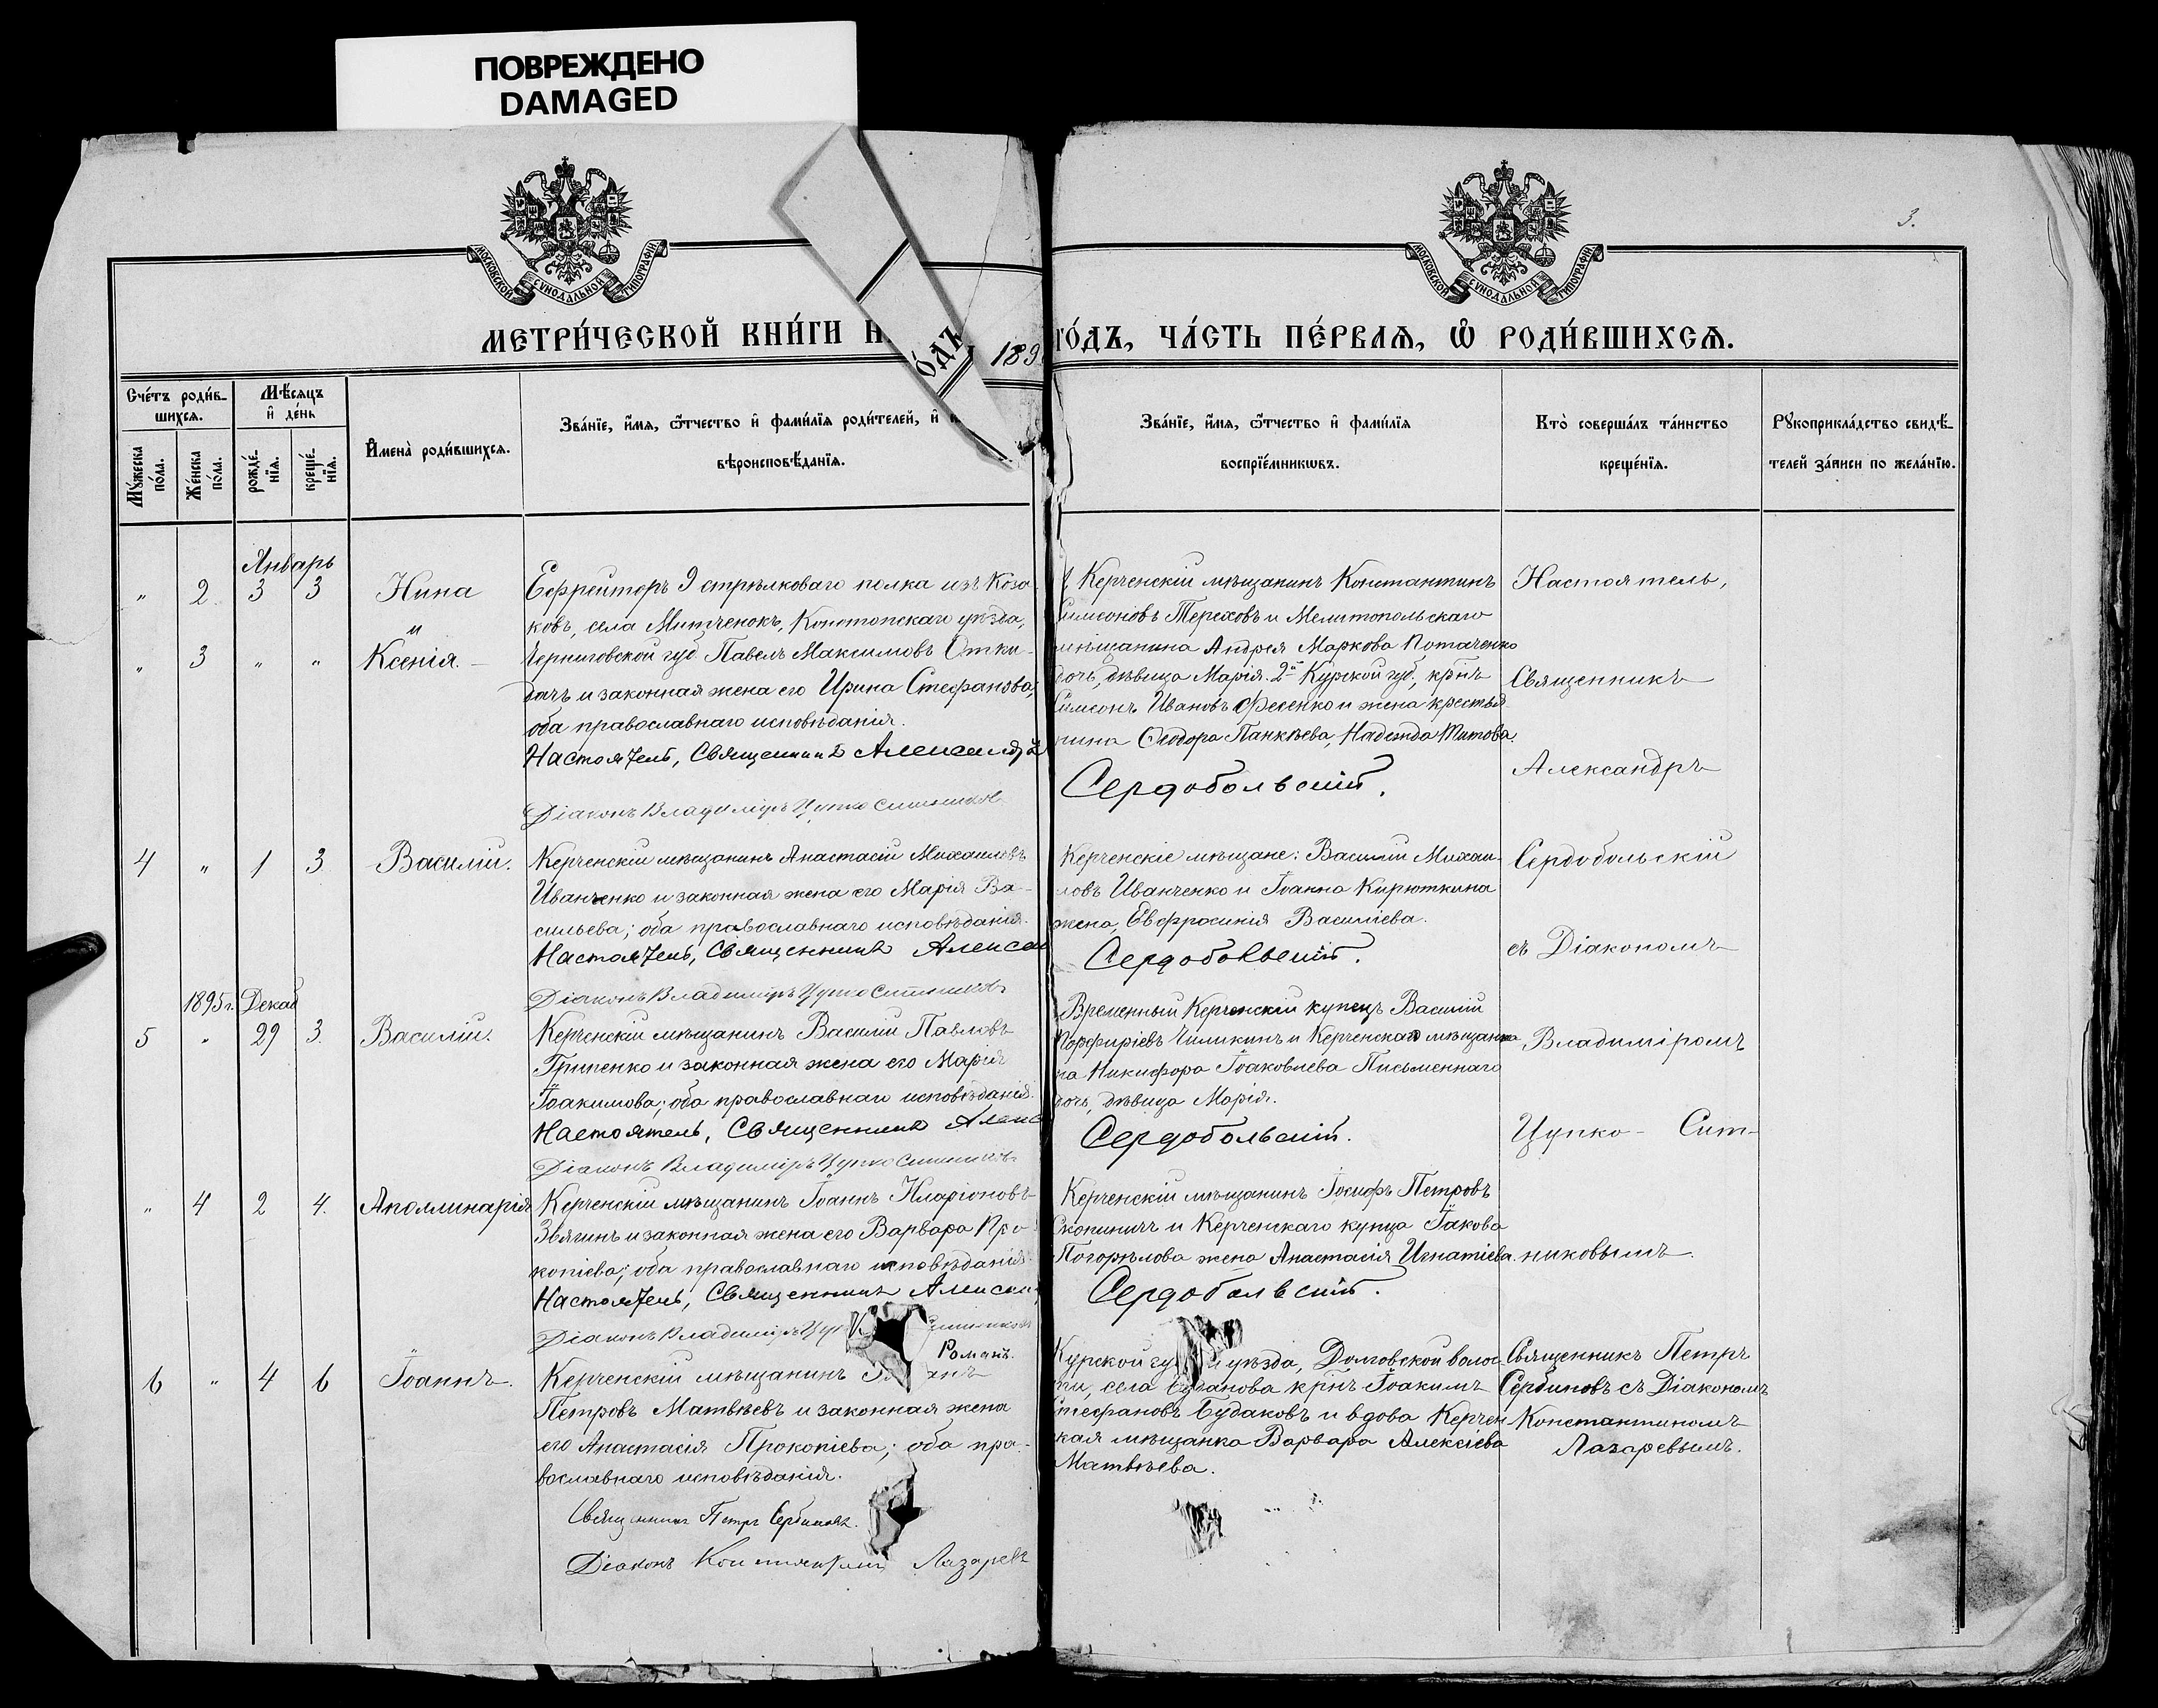 ПОВРЕЖДЕНО
DAMAGED
МОСКОВСКОЙ СѴНОДАЛЬНОЙ ТИПОГРАФІИ
МОСКОВСКОЙ СѴНОДАЛЬНОЙ ТИПОГРАФІИ
3.
МЕТРИ́ЧЕСКОЙ КНИ́ГИ Н
О́ДЪ
189
ГО́ДЪ, ЧА́СТЬ ПЕ́РВАѦ, Ѽ РОДИ́ВШИХСѦ.
Сче́тъ роди́в-
шихсѧ.
Мѣ́сѧцъ
и҆ де́нь
Мꙋ́жеска по́ла.
Же́нска по́ла.
рожде́-нїѧ.
креще́-нїѧ.
И҆мена̀ роди́вшихсѧ.
Зва́нїе, и҆́мѧ, ѻ҆́тчество и҆ фами́лїѧ роди́телей, и҆
вѣроисповѣ́данїѧ.
Зва́нїе, и҆́мѧ, ѻ҆́тчество и҆ фами́лїѧ
воспрїе́мникωвъ.
Кто̀ соверша́лъ та́инство
креще́нїѧ.
Рꙋкоприкла́дство свидѣ́-
телей за́писи по жела́нїю.
Январь
" 2 3 3 Нина
и
" 3 " " Ксенія.
Ефрейторъ 9 стрѣлковаго полка изъ Коза-
ковъ, села Митченокъ, Конотопскаго уѣзда,
Черниговской губ. Павелъ Максимовъ Отки-
дачъ и законная жена его Ирина Стефанова;
оба православнаго исповѣданія.
Настоятель, Священникъ Александръ
Діаконъ Владиміръ Цупко Ситников
Керченскій мѣщанинъ Константинъ
Симеоновъ Тереховъ и Мелитопольскаго
мѣщанина Андрея Маркова Потаченко
дочь, дѣвица Марія. 2й Курской губ., крнъ
Симеонъ Ивановъ Фесенко и жена крестья
нина Ѳеодора Панкѣева, Надежда Титова.
Сердобольскій.
Настоятель,
Священникъ
Александръ
4 " 1 3 Василій.
Керченскій мѣщанинъ Анастасій Михаиловъ
Иванченко и законная жена его Марія Ва-
сильева; оба православнаго исповѣданія.
Настоятель, Священникъ Алекса
Діаконъ Владиміръ Цупко Ситников
Керченскіе мѣщане: Василій Михаи-
ловъ Иванченко и Іоанна Кирюткина
жена, Евфросинія Василіева.
Сердобольскій.
Сердобольскій
съ Діакономъ
1895 г. Декаб
5 " 29 3. Василій.
Керченскій мѣщанинъ Василій Павловъ
Гриненко и законная жена его Марія
Іоакимова; оба православнаго исповѣданія.
Настоятель, Священникъ Алекс
Діаконъ Владиміръ Цупко Ситников
Временный Керченскій купецъ Василій
Порфиріевъ Чиликинъ и Керченскаго мѣщани
на Никифора Іоаковлева Письменнаго
дочь, дѣвица Марія.
Сердобольскій.
Владиміромъ
Цупко- Сит-
" 4 2 4. Аполлинарія
Керченскій мѣщанинъ Іоаннъ Иларіоновъ
Звягинъ и законная жена его Варвара Про-
копіева; оба православнаго исповѣданія.
Настоятель, Священникъ Алексан
Діаконъ Владиміръ Цуп
Керченскій мѣщанинъ Іосифъ Петровъ
и Керченскаго купца Іакова
Погорѣлова жена Анастасія Игнатіева.
Сердобольскій.
никовымъ.
6 " 4 6 Іоаннъ.
Романъ.
Керченскій мѣщанинъ
Петровъ Матвѣевъ и законная жена
его Анастасія Прокопіева; оба пра-
вославнаго исповѣданія.
Священникъ Петръ Сербиновъ.
Діаконъ Константинъ Лазаревъ
Курской уѣзда, Долговской волос
ти, села крнъ Іоакимъ
Стефановъ Будаковъ и вдова Керчен
кая мѣщанка Варвара Алексіева
Матвѣева.
Священникъ Петръ
Сербиновъ съ Діакономъ
Константиномъ
Лазаревымъ.